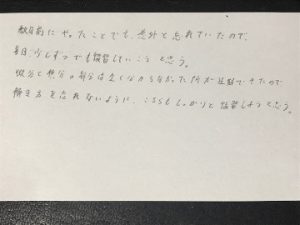 数日前にやったことでも、意外と忘れていたので、
毎日、少しずつでも復習していこうと思う。
微分と積分の部分は全くわからなかった所が理解できたので
解き方を忘れないように、こちらもしっかりと復習しようと思う。